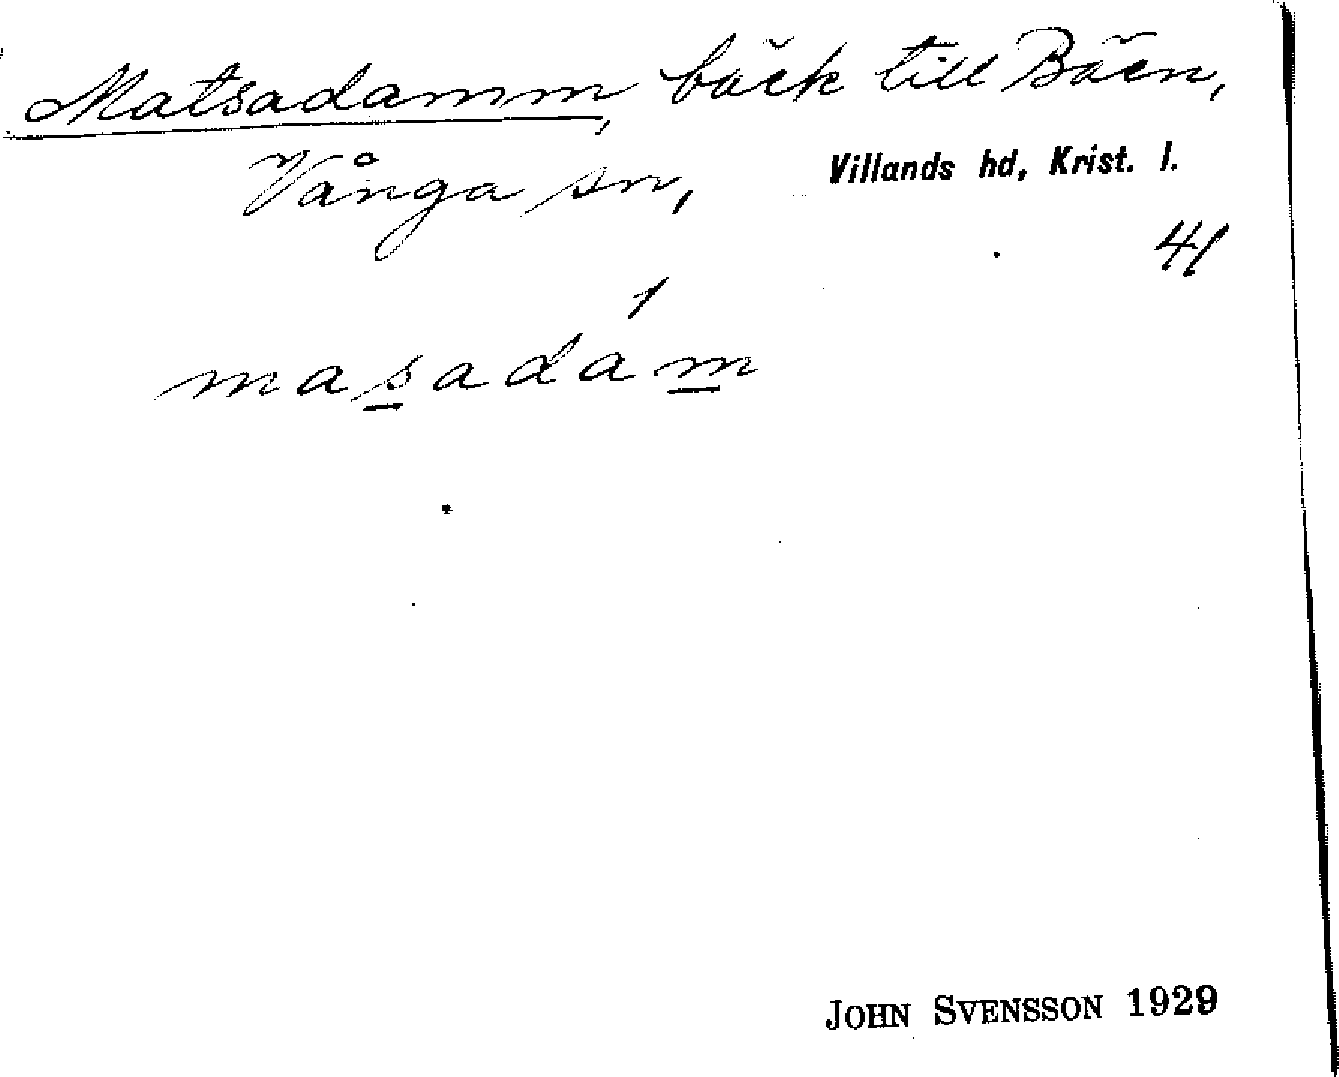 Matsadamm, bäck till Bäen,
Vånga sn, Villands hd, Krist. l.
41
masadám
JOHN SVENSSON 1929